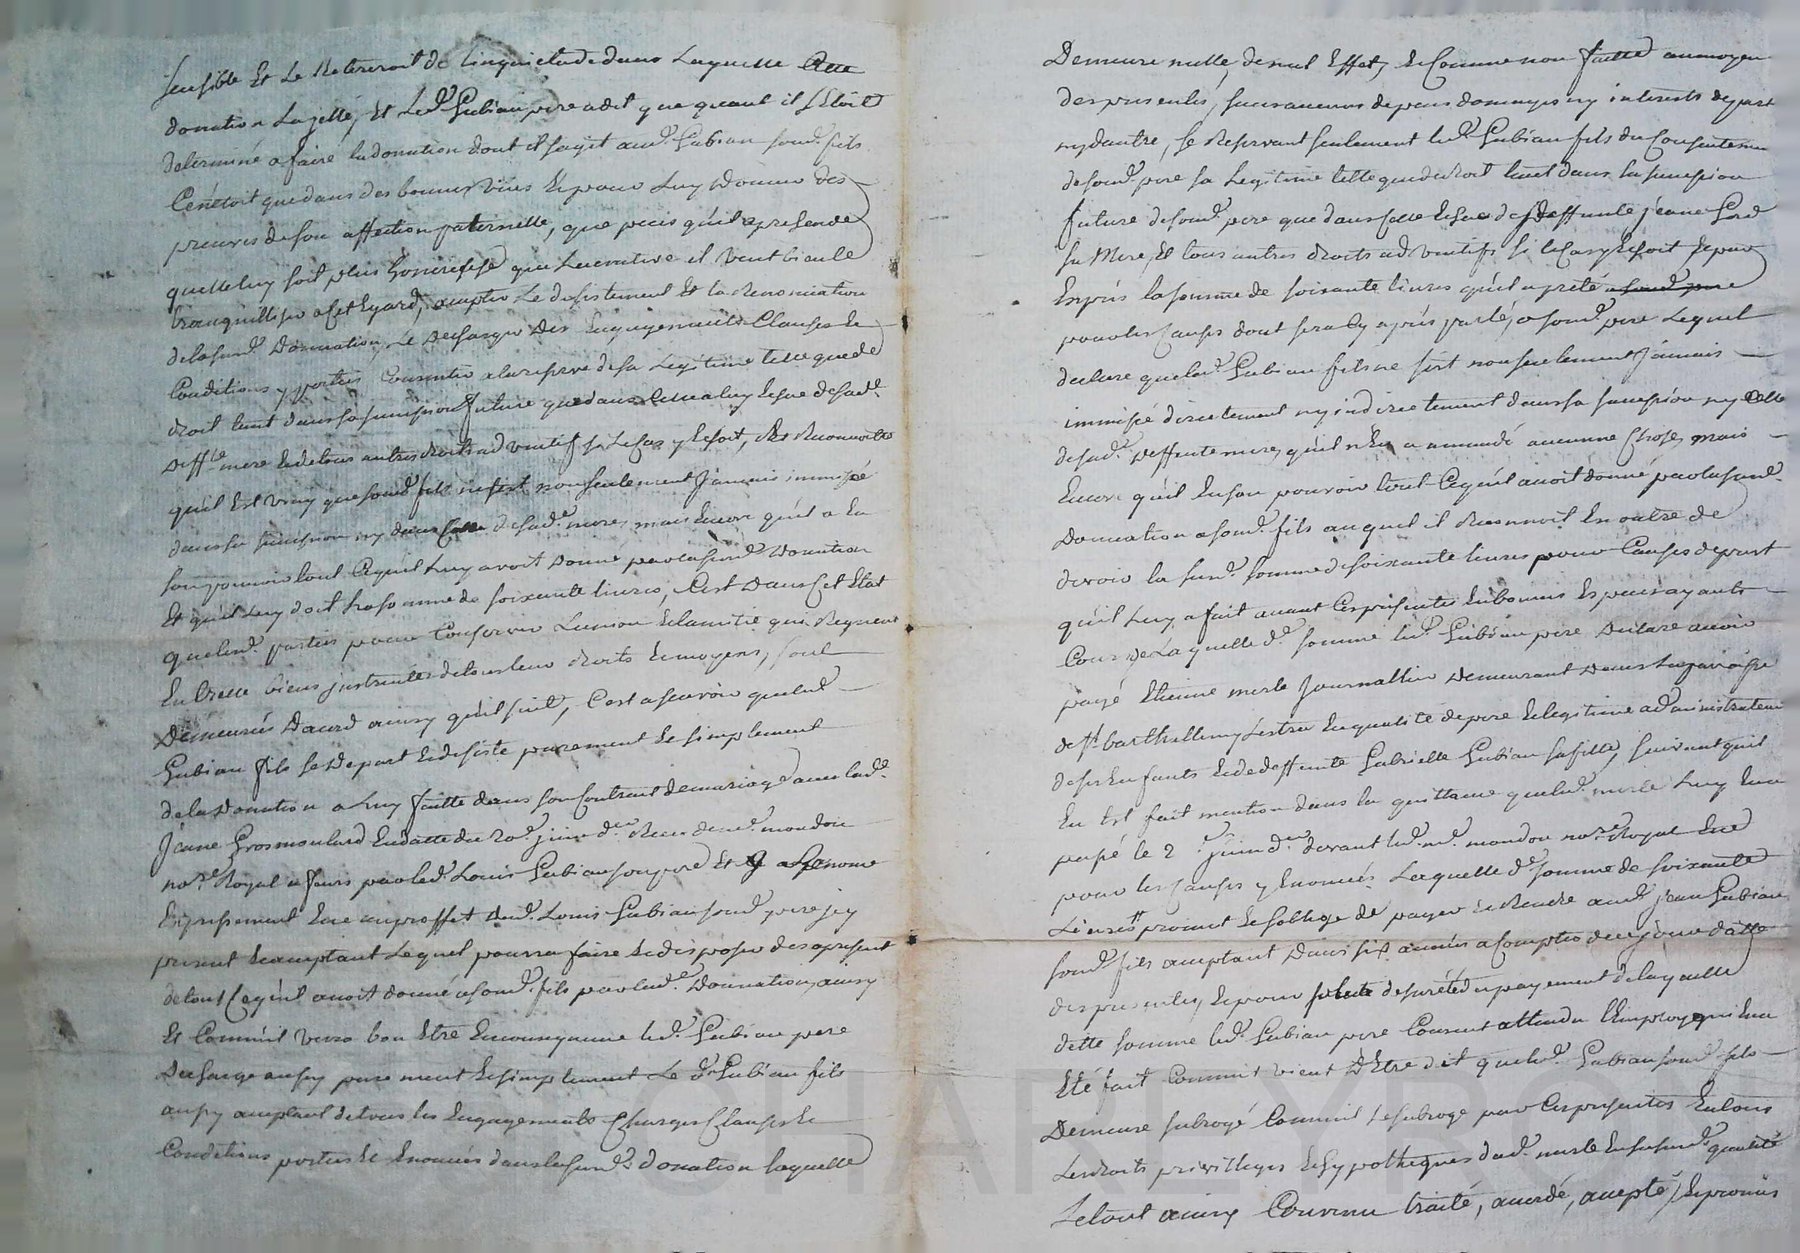 sensible Et Le Retireroit de L'inquietude dans Laquelle Cette
donation La jetté, Et Led. Gubian pere a dit que quant il s'Etoit
determiné a faire la donation dont il s'agit aud. Gubian sond. fils
Ce n'étoit que dans des bonnes vües Et pour Luy Donner des
preuves de son affection paternelle, que puis qu'il apresende
quelle luy soit plus honereuse que Lucrative il veut bien le
tranquilliser a Cet Egard, accepter Le desistement Et la Renonciation
de lasusd. Donnation, Le decharger Des Engagements Clauses Et
Conditions y portées Consentir a la reserve de sa Legitime telle que de
droit tant dans sa succession future que dans Celle a luy Echue de sad.
deff.te mere Et de tous autres droits adventifs si Le Cas y Echoit,
qu'il Est vray que sond. fils ne s'est non seulement Jamais immiscé
dans sa succession ny dans Celle de sad. mere, mais Encore qu'il a En
son pouvoir tout Ce qu'il Luy avoit Donné par lasusd. Donnation
Et qu'il Luy doit la somme de soixante livres, C'est Dans Cet Etat
que lesd. parties pour Conserver L'union Et l'amitié qui Regnent
Entr'elles biens instruites de tous leur droits Et moyens, sont
Demeurées D'acord ainsy qu'il suit, C'est a scavoir que led.
Gubian fils se Depart Et desiste purement Et simplement
de la Donation a Luy faitte dans son Contrait de mariage avec lad.
Jeanne Grosmoulard En datte du 20e. juin d.er Receu de me. mondon
no.re Royal a feurs par led. Louis Gubian son pere Et y a Renoncé
Expressement En au proffit dud. Louis Gubian sond. pere icy
present Et acceptant Lequel pourra faire Et disposer des apresent
de tout Ce qu'il avoit donné a sond. fils par lad. Donnation, ainsy
Et Comm'il verra bon Etre Et moyennant led. Gubian pere
Decharge aussy purement Et simplement Le S.r Gubian fils
aussy acceptant de tous les Engagements Charges Clauses Et
Conditions portées Et Enoncées dans lasusd. donation laquelle
Demeure nulle, de nul Effet, Et Comme non faitte au moyen
des presentes, sans aucuns depens domages ny interets de part
ny d'autre, se Reservant seulement led. Gubian fils du Consentement
de sond. pere sa Legitime telle que de droit tant dans la succession
future de sond. pere que dans celle Echue de deffunte jeanne
sa Mere, Et tous autres droits adventifs si le Cas y Echoit Et par
Exprés la somme de soixante livres qu'il a prété a sond. pere
pour les Causes dont sera Cy aprés parlé, a sond. pere Lequel
declare que led. Gubian fils ne s'est non seulement Jamais
immiscé directement ny indirectement dans sa succession ny Celle
de sad. deffunte mere, qu'il n'En a amandé aucunne Chose, mais
Encore qu'il En son pouvoir tout Ce qu'il avoit donné par lasusd.
Donnation a sond. fils auquel il Reconnoit En outre de
devoir la susd. somme de soixante livres pour Causes de prest
qu'il Luy a fait avant Ces presentes En bonnes Especes ayants
Cours, De Laquelle d. somme led. Gubian pere Declare avoir
payé Etienne merle Journallier Demeurant Dans La parroisse
de S.t barthellemy Lestra En qualité de pere Et legitime administrateur
de ses Enfants Et de deffunte Gabrielle Gubian sa fille, suivant qu'il
En Est fait mention dans la quittance que led. merle Luy En a
passé le 2e. juin d.er devant led. me. mondon no.re Royal
pour les Causes y Enoncées Laquelle d. somme de soixante
Livres promet Et s'oblige de payer Et Rendre aud. jean Gubian
sond. fils acceptant Dans six années a Compter de Ce jour datte
des presentes, Et pour sureté du payement de laquelle
ditte somme led. Gubian pere Consent attendu l'Employ qui En a
Eté fait Comm'il vient D'Etre dit que led. Gubian sond. fils
Demeure subrogé Comm'il Le subroge par Ces presentes En tous
Les droits privilleges Et hypotheques dud. merle En sasusd. qualité
Le tout ainsy Convenu traité, acordé, accepté, Et promis